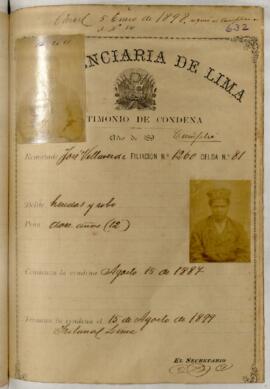 5 Enero de 1898,
632
PENITENCIARIA DE LIMA
TESTIMONIO DE CONDENA
Año de 189
Rematado José Villaverde FILIACION N.º 1260 CELDA N.º 81
Delito heridas y robo
Pena doce años (12)
Comienza la condena Agosto 15 de 1887
Termina la condena el 15 de Agosto de 1899
Tribunal Lima
EL SECRETARIO